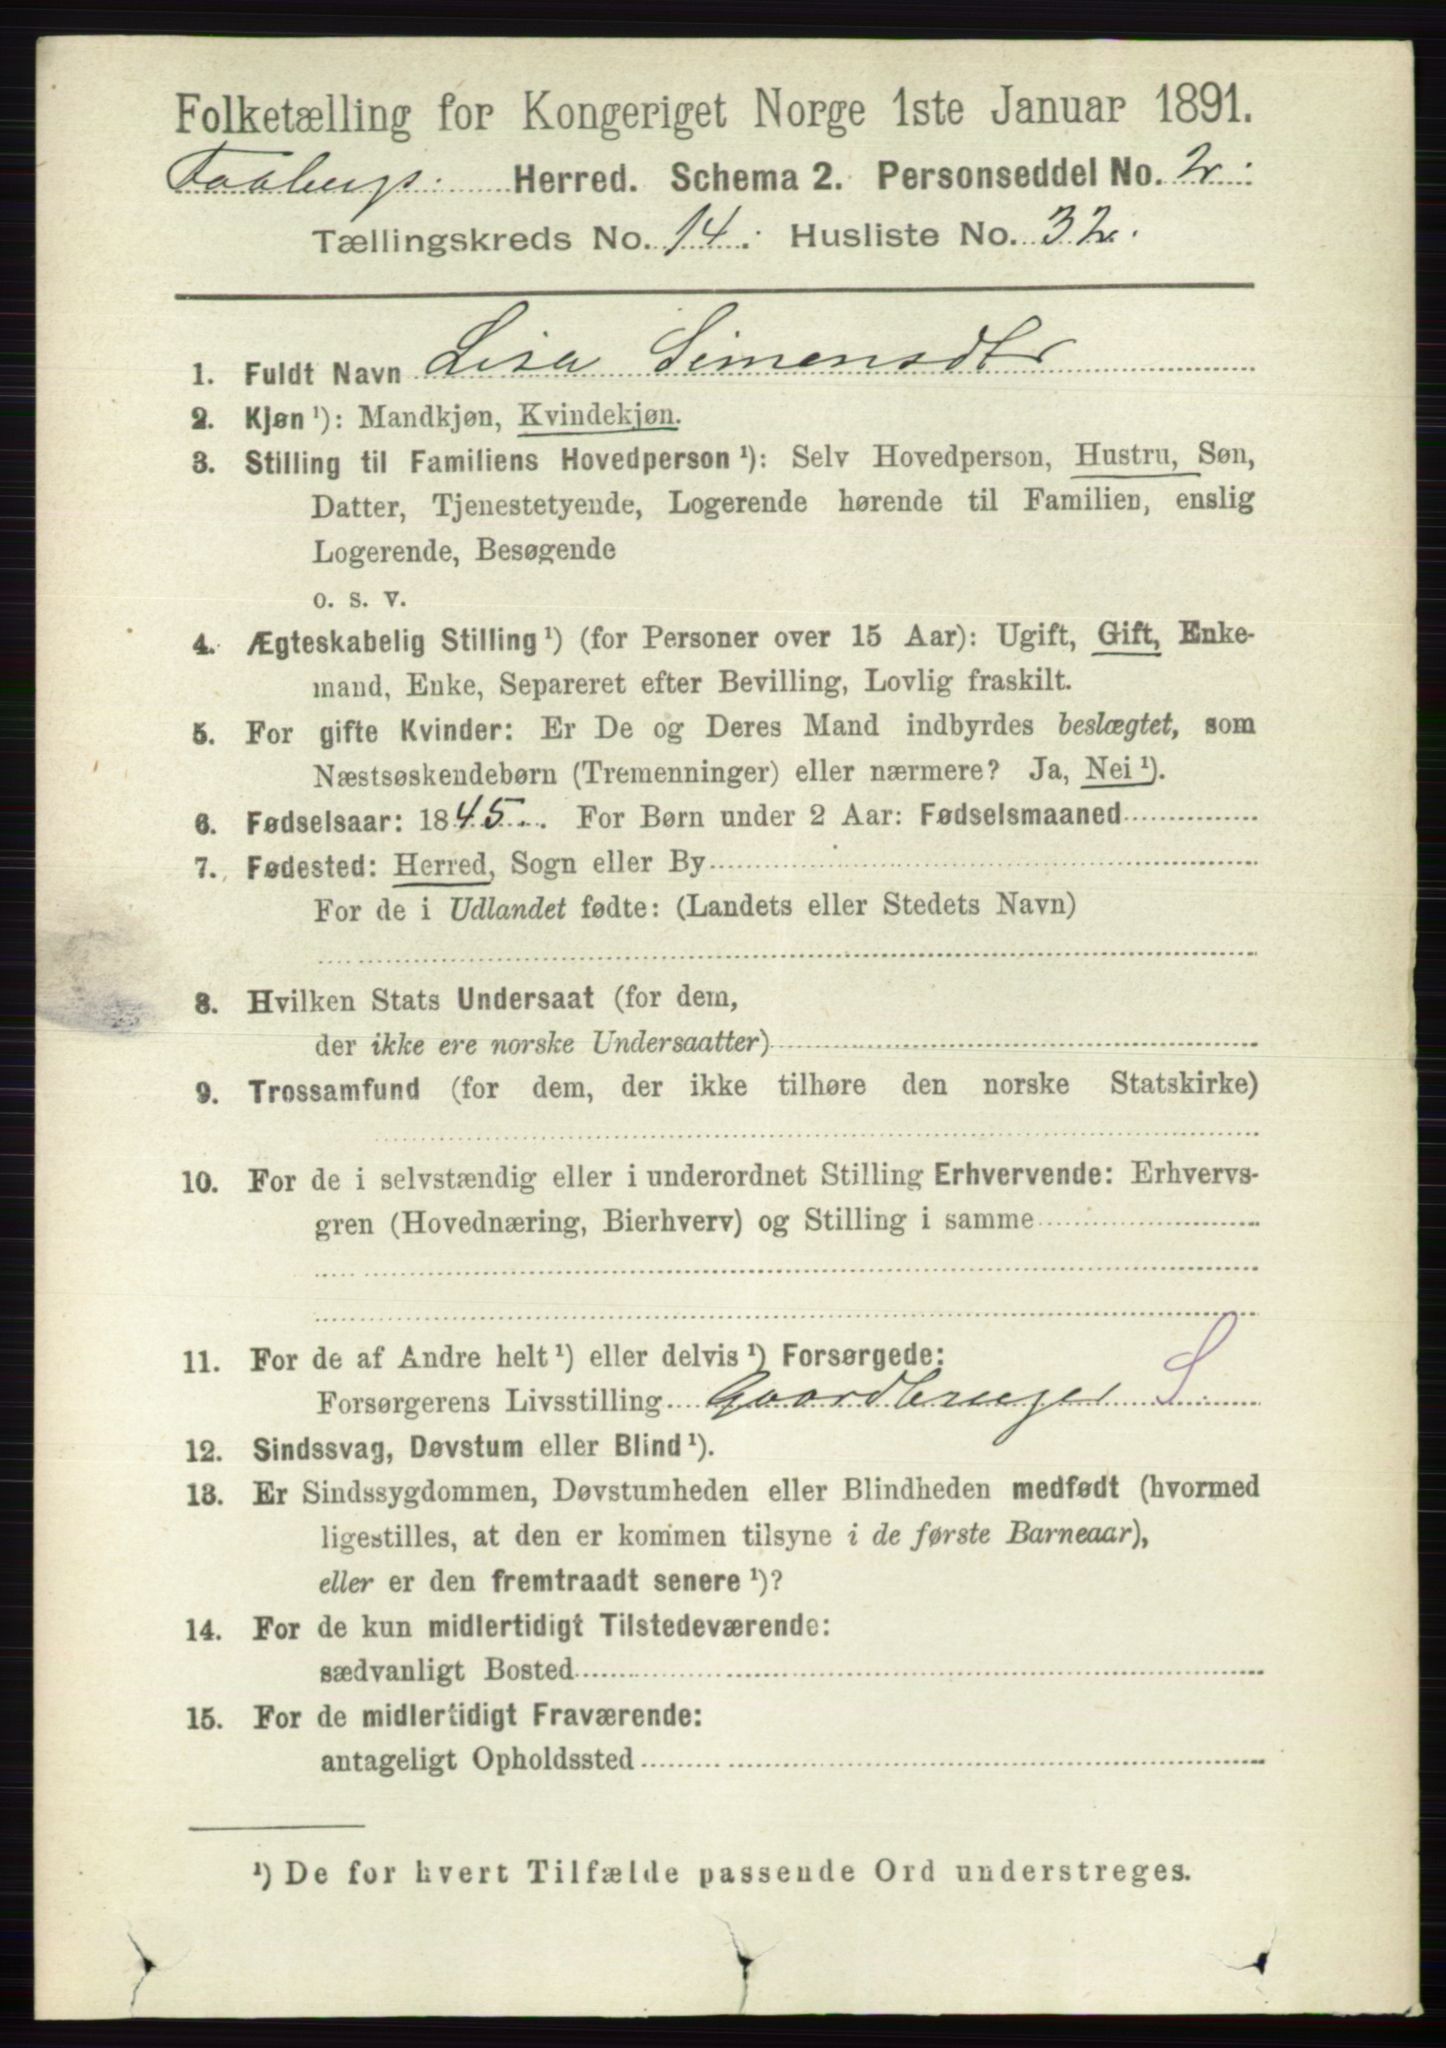 Folketælling for Kongeriget Norge 1ste Januar 1891.
Faabergs Herred. Schema 2. Personseddel No. 2.
Tællingskreds No. 14. Husliste No. 32.
1. Fuldt Navn Lisa Simensdtr
2. Kjøn¹): Mandkjøn, Kvindekjøn.
3. Stilling til Familiens Hovedperson¹): Selv Hovedperson, Hustru, Søn,
Datter, Tjenestetyende, Logerende hørende til Familien, enslig
Logerende, Besøgende
o. s. v.
4. Ægteskabelig Stilling¹) (for Personer over 15 Aar): Ugift, Gift, Enke-
mand, Enke, Separeret efter Bevilling, Lovlig fraskilt.
5. For gifte Kvinder: Er De og Deres Mand indbyrdes beslægtet, som
Næstsøskendebørn (Tremenninger) eller nærmere? Ja, Nei¹).
6. Fødselsaar: 1845. For Børn under 2 Aar: Fødselsmaaned
7. Fødested: Herred, Sogn eller By
For de i Udlandet fødte: (Landets eller Stedets Navn)
8. Hvilken Stats Undersaat (for dem,
der ikke ere norske Undersaatter)
9. Trossamfund (for dem, der ikke tilhøre den norske Statskirke)
10. For de i selvstændig eller i underordnet Stilling Erhvervende: Erhvervs-
gren (Hovednæring, Bierhverv) og Stilling i samme
11. For de af Andre helt¹) eller delvis¹) Forsørgede:
Forsørgerens Livsstilling Gaardbruger S
12. Sindssvag, Døvstum eller Blind¹).
13. Er Sindssygdommen, Døvstumheden eller Blindheden medfødt (hvormed
ligestilles, at den er kommen tilsyne i de første Barneaar),
eller er den fremtraadt senere¹)?
14. For de kun midlertidigt Tilstedeværende:
sædvanligt Bosted
15. For de midlertidigt Fraværende:
antageligt Opholdssted
¹) De for hvert Tilfælde passende Ord understreges.